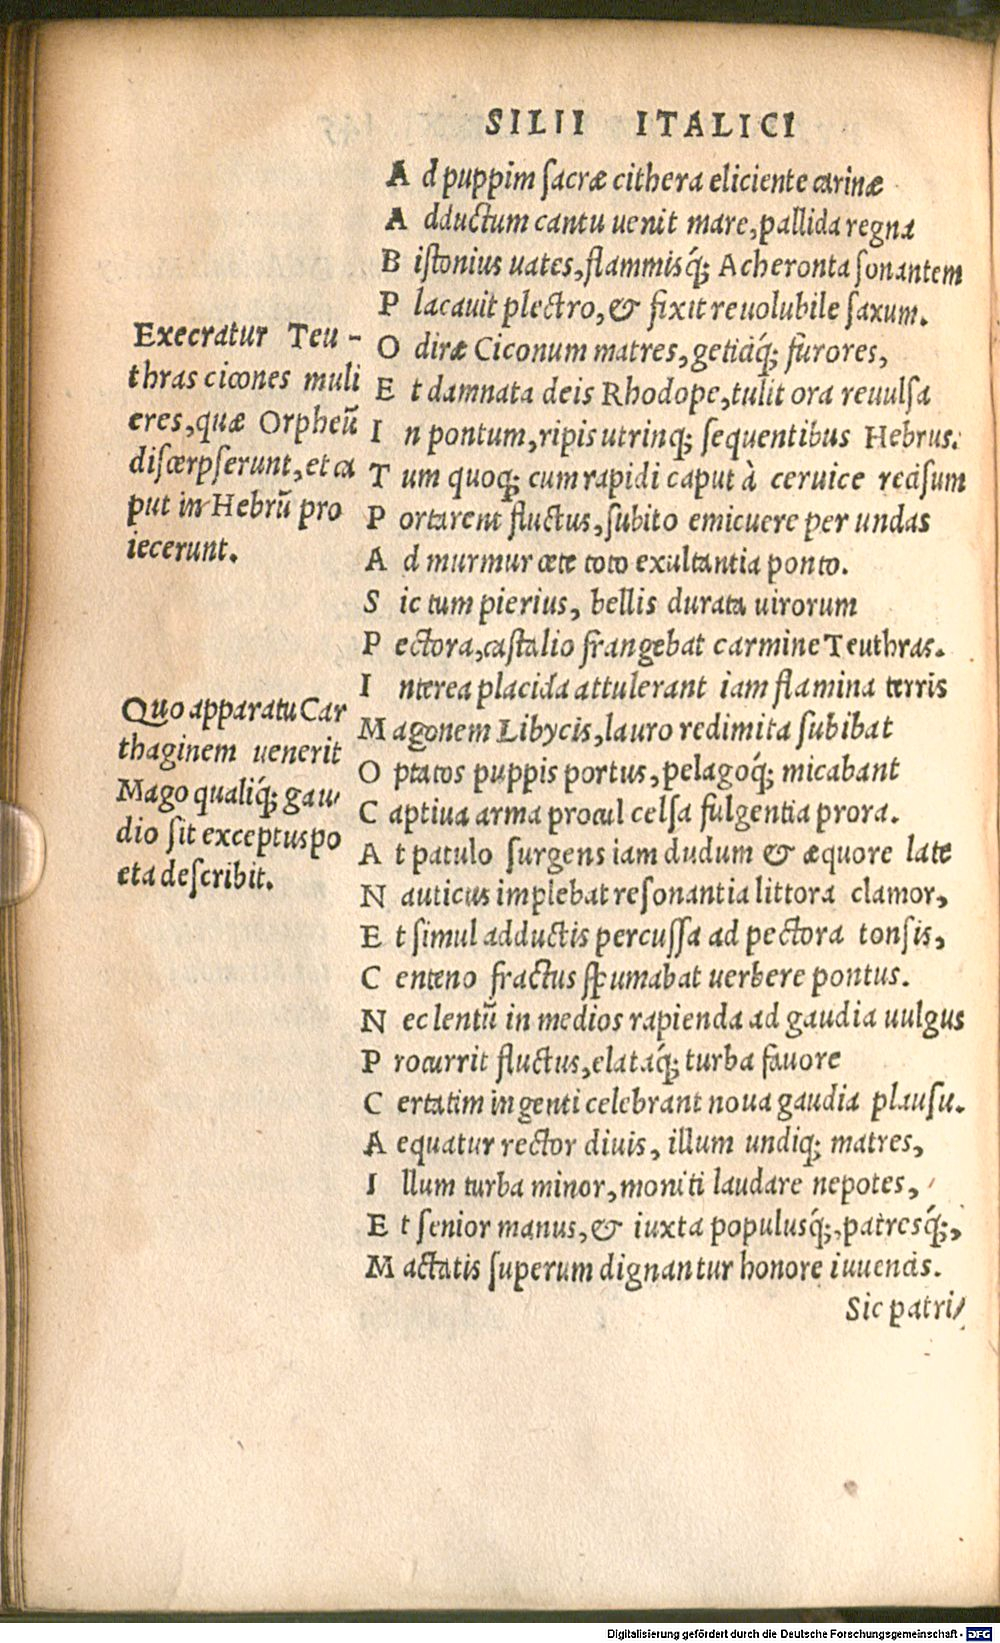 SILII ITALICI
Ad puppim sacræ cithera eliciente carinæ
Adductum cantu uenit mare, pallida regna
Bistonius uates, flammisq́; Acheronta sonantem
Placauit plectro, & fixit reuolubile saxum.
O diræ Ciconum matres, geticaq́; furores,
Et damnata deis Rhodope, tulit ora reuulsa
In pontum, ripis utrinq; sequentibus Hebrus.
Tum quoq; cum rapidi caput à ceruice recisum
Portarent fluctus, subito emicuere per undas
Ad murmur cete toto exultantia ponto.
Sic tum pierius, bellis durata uirorum
Pectora, castalio frangebat carmine Teuthras.
Interea placida attulerant iam flamina terris
Magonem Libycis, lauro redimita subibat
Optatos puppis portus, pelagoq́; micabant
Captiua arma procul celsa fulgentia prora.
At patulo surgens iam dudum & æquore late
Nauticus implebat resonantia littora clamor,
Et simul adductis percussa ad pectora tonsis,
Centeno fractus spumabat uerbere pontus.
Nec lentũ in medios rapienda ad gaudia uulgus
Procurrit fluctus, elataq́; turba fauore
Certatim ingenti celebrant noua gaudia plausu.
Aequatur rector diuis, illum undiq; matres,
Illum turba minor, moniti laudare nepotes,
Et senior manus, & iuxta populusq́;, patresq́;,
Mactatis superum dignantur honore iuuencis.
Sic patri/
Execratur Teu-
thras cicones muli
eres, quæ Orpheũ
discerpserunt, et ca
put in Hebrũ pro
iecerunt.
Quo apparatu Car
thaginem uenerit
Mago qualiq́; gau/
dio sit exceptus po
eta describit.
Digitalisierung gefördert durch die Deutsche Forschungsgemeinschaft - DFG